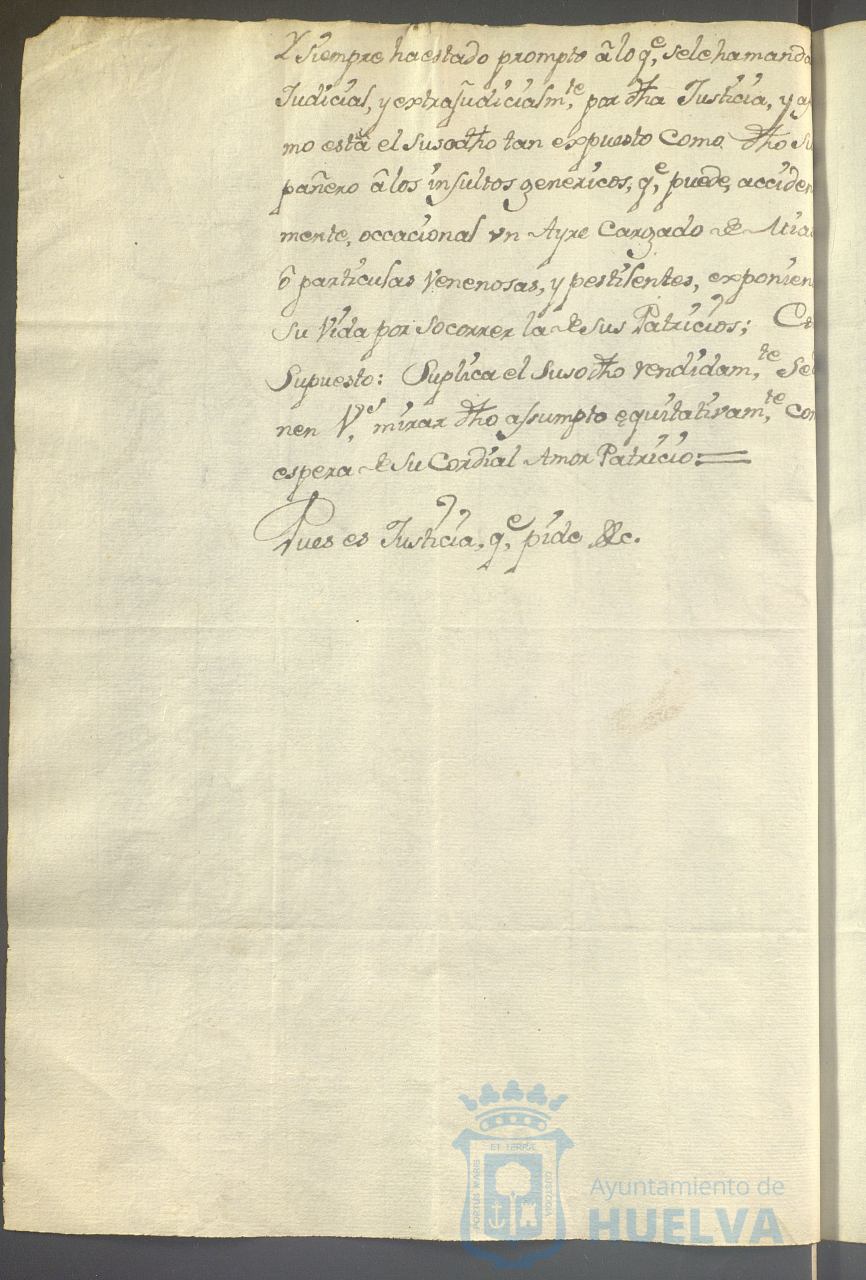 Y siempre ha estado prompto â lo q.e se le ha manda
Judicial, y extrajudicialm.te por dha Justicia, y a
mo està el Susodho tan expuesto como dho Su
pañero â los insultos genericos, q.e puede, acciden
mente, occacional vn Ayre Cargado de Mia
ô particulas Venenosas, y pestilentes, exponien
su Vida por Socorrer la de sus Patricios; Co
Supuesto: Suplica el Susodho rendidam.te Se
nen V.s mirar dho assumpto equitativam.te co
espera de su Cordial Amor Patricio=
Pues es Justicia, q.e pide &c.
ET TERRAE
PORTUS MARIS
CUSTODIA
Ayuntamiento de
HUELVA